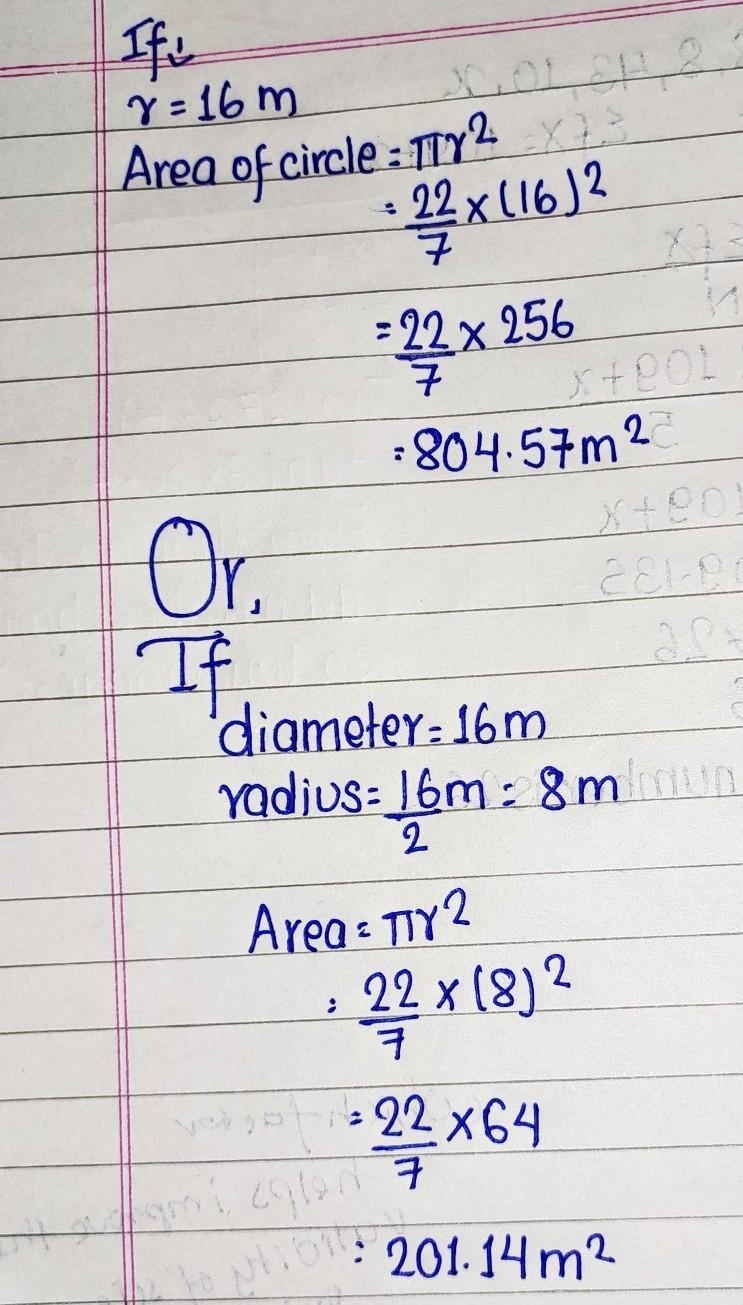 If↓
r = 16 m
Area of circle = πr²
= 22/7 × (16)²
= 22/7 × 256
= 804.57m²
Or,
If
diameter = 16m
radius = 16m/2 = 8m
Area = πr²
= 22/7 × (8)²
= 22/7 × 64
= 201.14m²